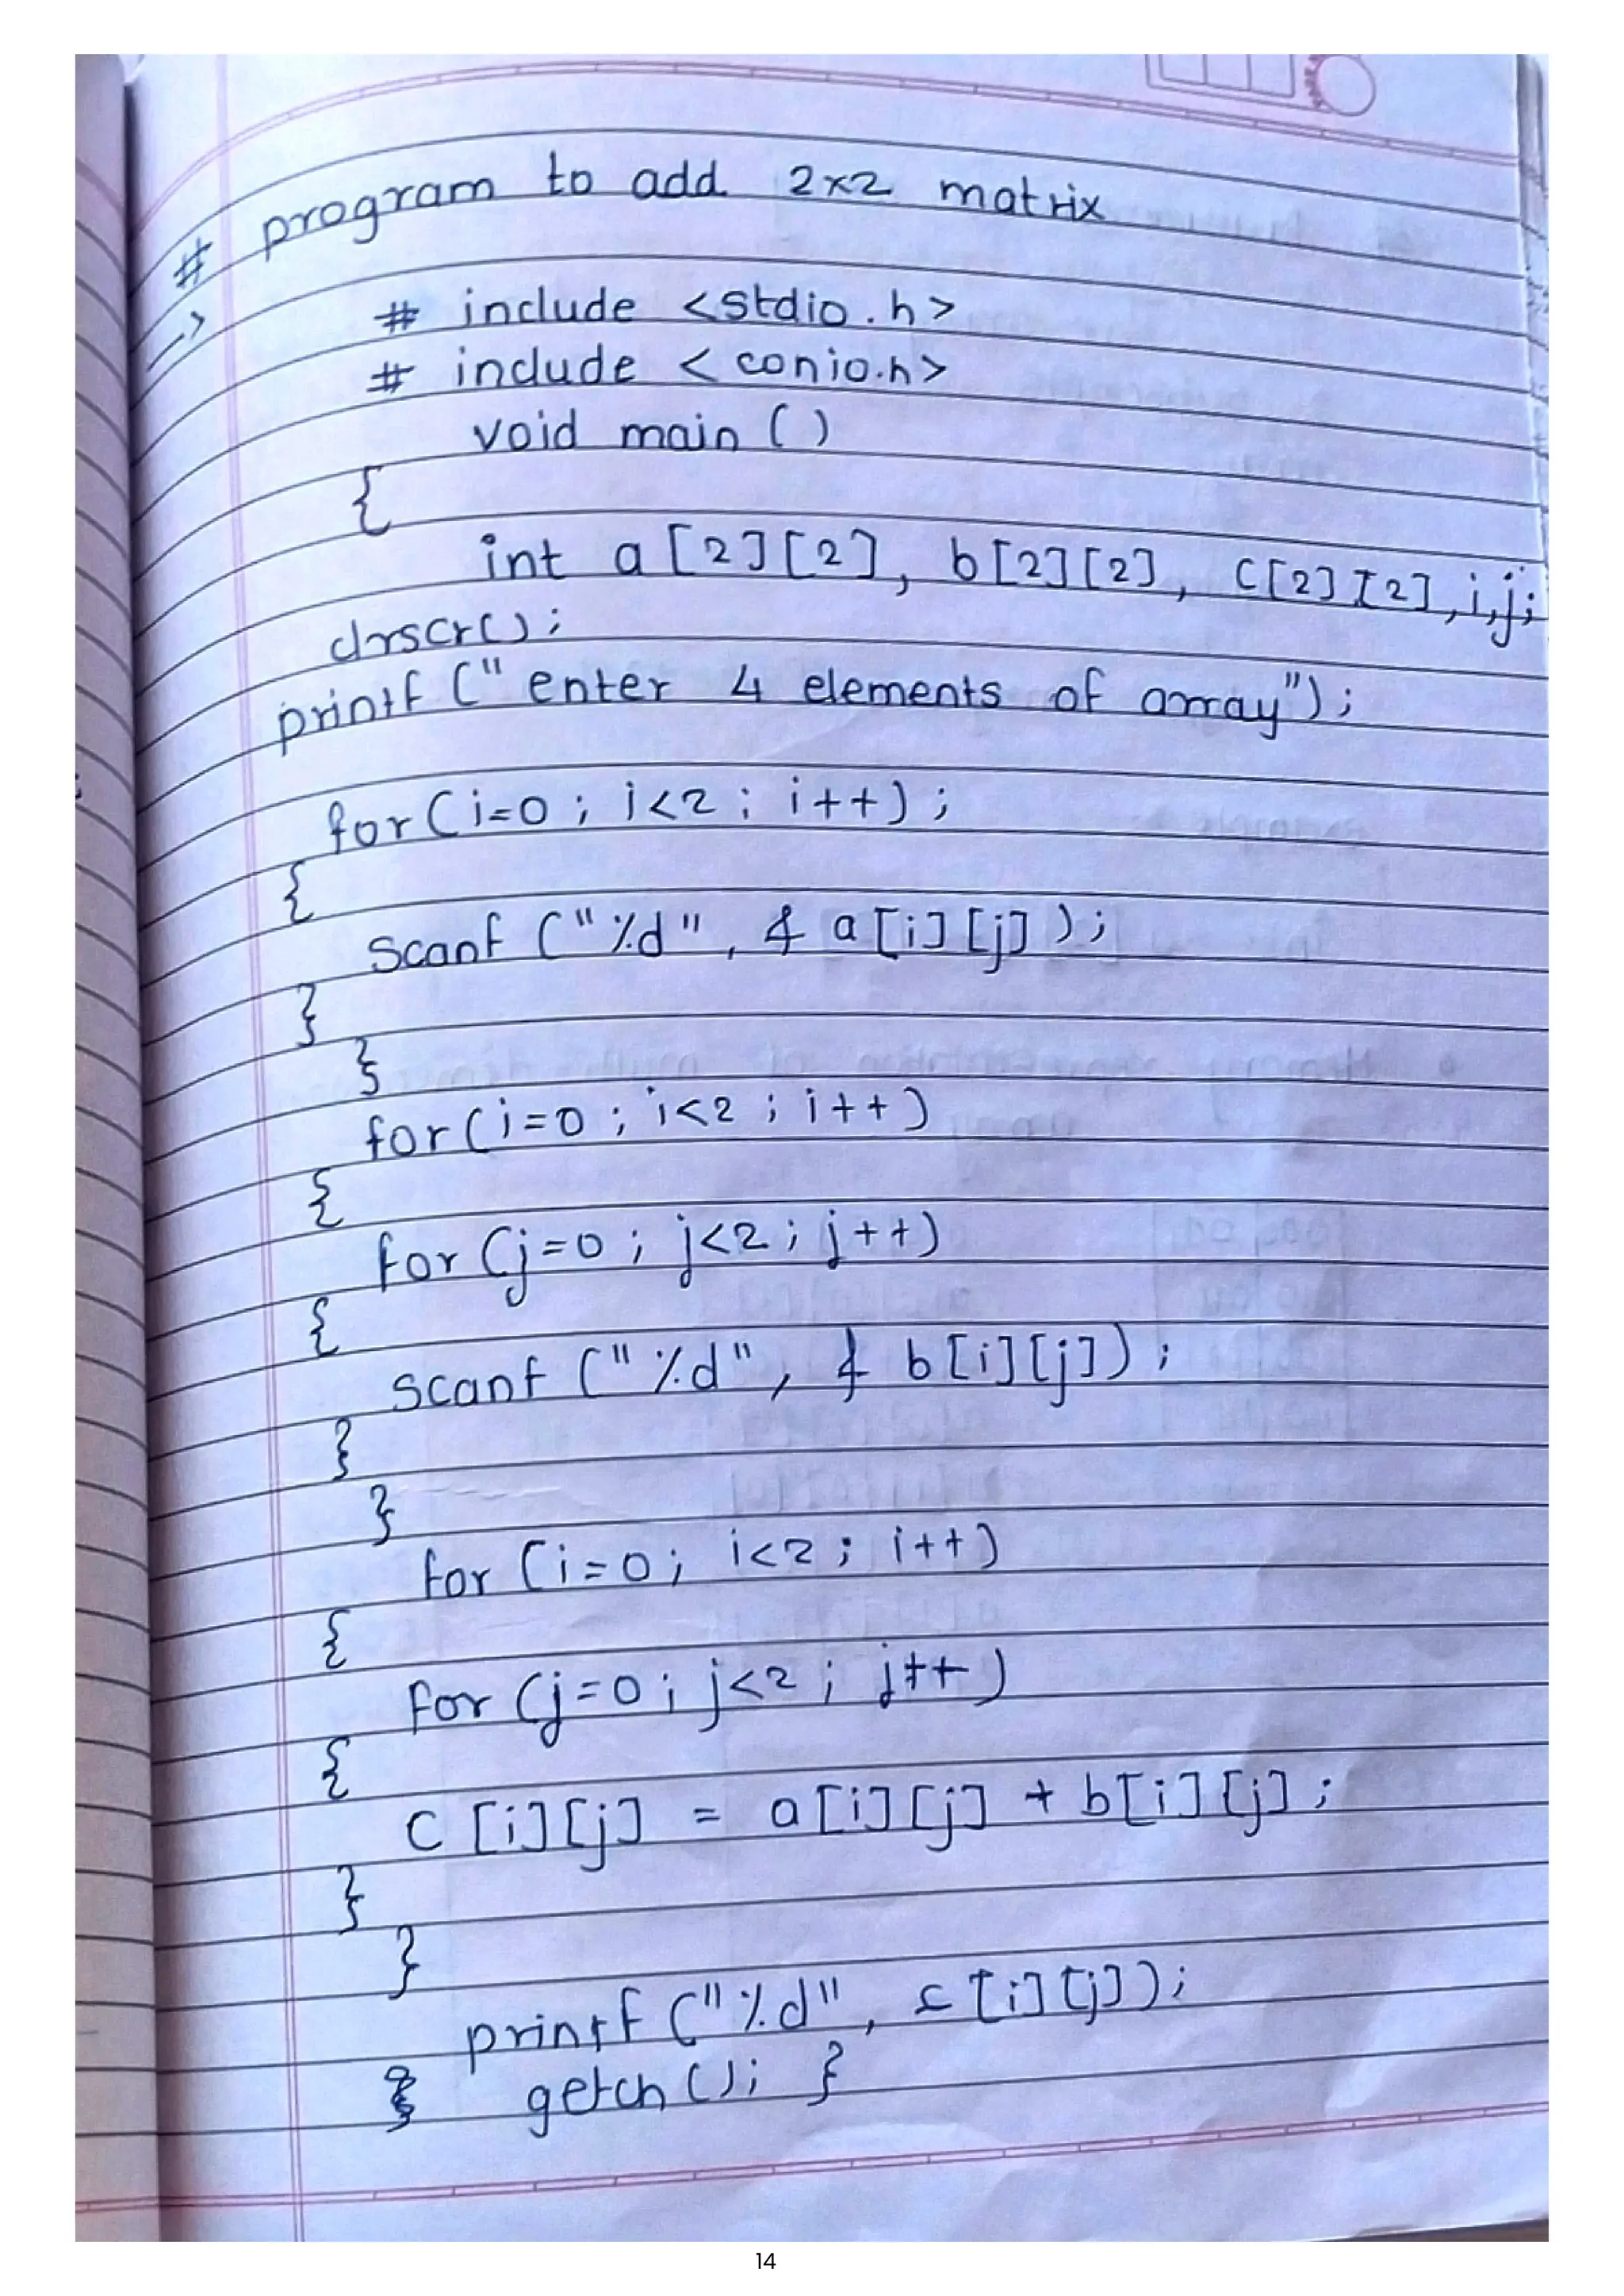 # program to add 2x2 matrix
->
# include <stdio.h>
# include < conio.h>
void main ()
{
int a [2][2], b[2][2], c[2][2],i,j;
clrscr();
printf (" enter 4 elements of array");
for( i=0 ; i<2 ; i++) ;
{
scanf ("%d", & a[i][j] );
}
}
for( i=0 ; i<2 ; i++ )
{
for (j=0 ; j<2 ; j++)
{
scanf ("%d", & b[i][j]) ;
}
}
for (i=0; i<2 ; i++)
{
for (j=0 ; j<2 ; j++ )
{
C [i][j] = a[i][j] + b[i][j] ;
}
}
printf ("%d", c[i][j]);
} getch (); }
14